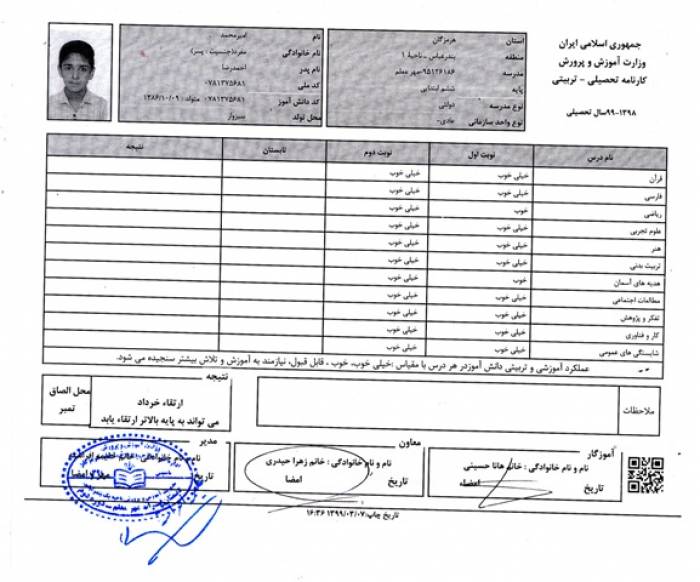 جمهوری اسلامی ایران
وزارت آموزش و پرورش
کارنامه تحصیلی - تربیتی
۱۳۹۸-۹۹ سال تحصیلی
استان هرمزگان
منطقه بندرعباس - ناحیه ۱
مدرسه ۹۵۱۲۶۱۸۶-مهر معلم
پایه ششم ابتدایی
نوع مدرسه دولتی
نوع واحد سازمانی عادی-
نام امیرمحمد
نام خانوادگی مفرد(جنسیت : پسر)
نام پدر احمدرضا
کد ملی ۰۷۸۱۳۷۵۶۸۱
کد دانش آموز ۰۷۸۱۳۷۵۶۸۱ متولد: ۱۳۸۶/۱۰/۰۹
محل تولد سبزوار
نام درس نوبت اول نوبت دوم تابستان نتیجه
قرآن خیلی خوب خیلی خوب
فارسی خیلی خوب خیلی خوب
ریاضی خوب خیلی خوب
علوم تجربی خیلی خوب خیلی خوب
هنر خیلی خوب خیلی خوب
تربیت بدنی خیلی خوب خیلی خوب
هدیه های آسمان خوب خیلی خوب
مطالعات اجتماعی خیلی خوب خیلی خوب
تفکر و پژوهش خیلی خوب خیلی خوب
کار و فناوری خیلی خوب خیلی خوب
شایستگی های عمومی خیلی خوب خیلی خوب
عملکرد آموزشی و تربیتی دانش آموزدر هر درس با مقیاس :خیلی خوب، خوب ، قابل قبول، نیازمند به آموزش و تلاش بیشتر سنجیده می شود.
ملاحظات
نتیجه
ارتقاء خرداد
می تواند به پایه بالاتر ارتقاء یابد
محل الصاق
تمبر
آموزگار
نام و نام خانوادگی : خانم هانا حسینی
تاریخ امضاء
معاون
نام و نام خانوادگی : خانم زهرا حیدری
تاریخ امضا
مدیر
نام و نام خانوادگی : خانم
تاریخ
تاریخ چاپ:۱۳۹۹/۰۳/۰۷ ۱۶:۳۶